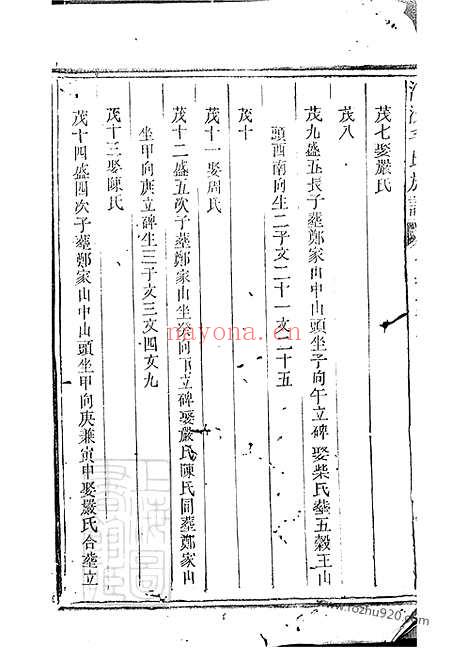 氏族譜
茂七娶嚴氏
茂八
茂九盛五長子葬鄭家山中山頭坐子向午立碑娶柴氏葬五穀王山
頭酉南向生二子文二十一文二十五
茂十
茂十一娶周氏
茂十二盛五次子葬鄭家山坐癸向丁立碑娶嚴氏陳氏同葬鄭家山
坐甲向庚立碑生三子文三文四文九
茂十三娶陳氏
茂十四盛四次子葬鄭家山中山頭坐甲向庚兼寅申娶嚴氏合葬立
nayona.cn
www.fozhu920.com